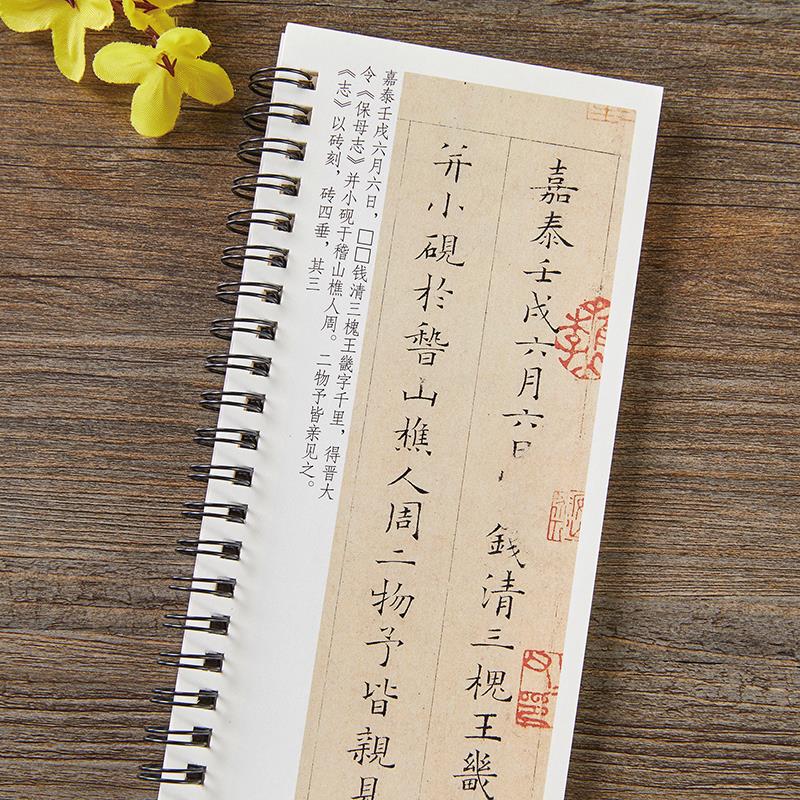 嘉泰壬戌六月六日 錢清三槐王畿
并小硯於稽山樵人周二物予皆親見
嘉泰壬戌六月六日，□□钱清三槐王畿字千里，得晋大
令《保母志》并小砚于稽山樵人周。二物予皆亲见之。
《志》以砖刻，砖四垂，其三